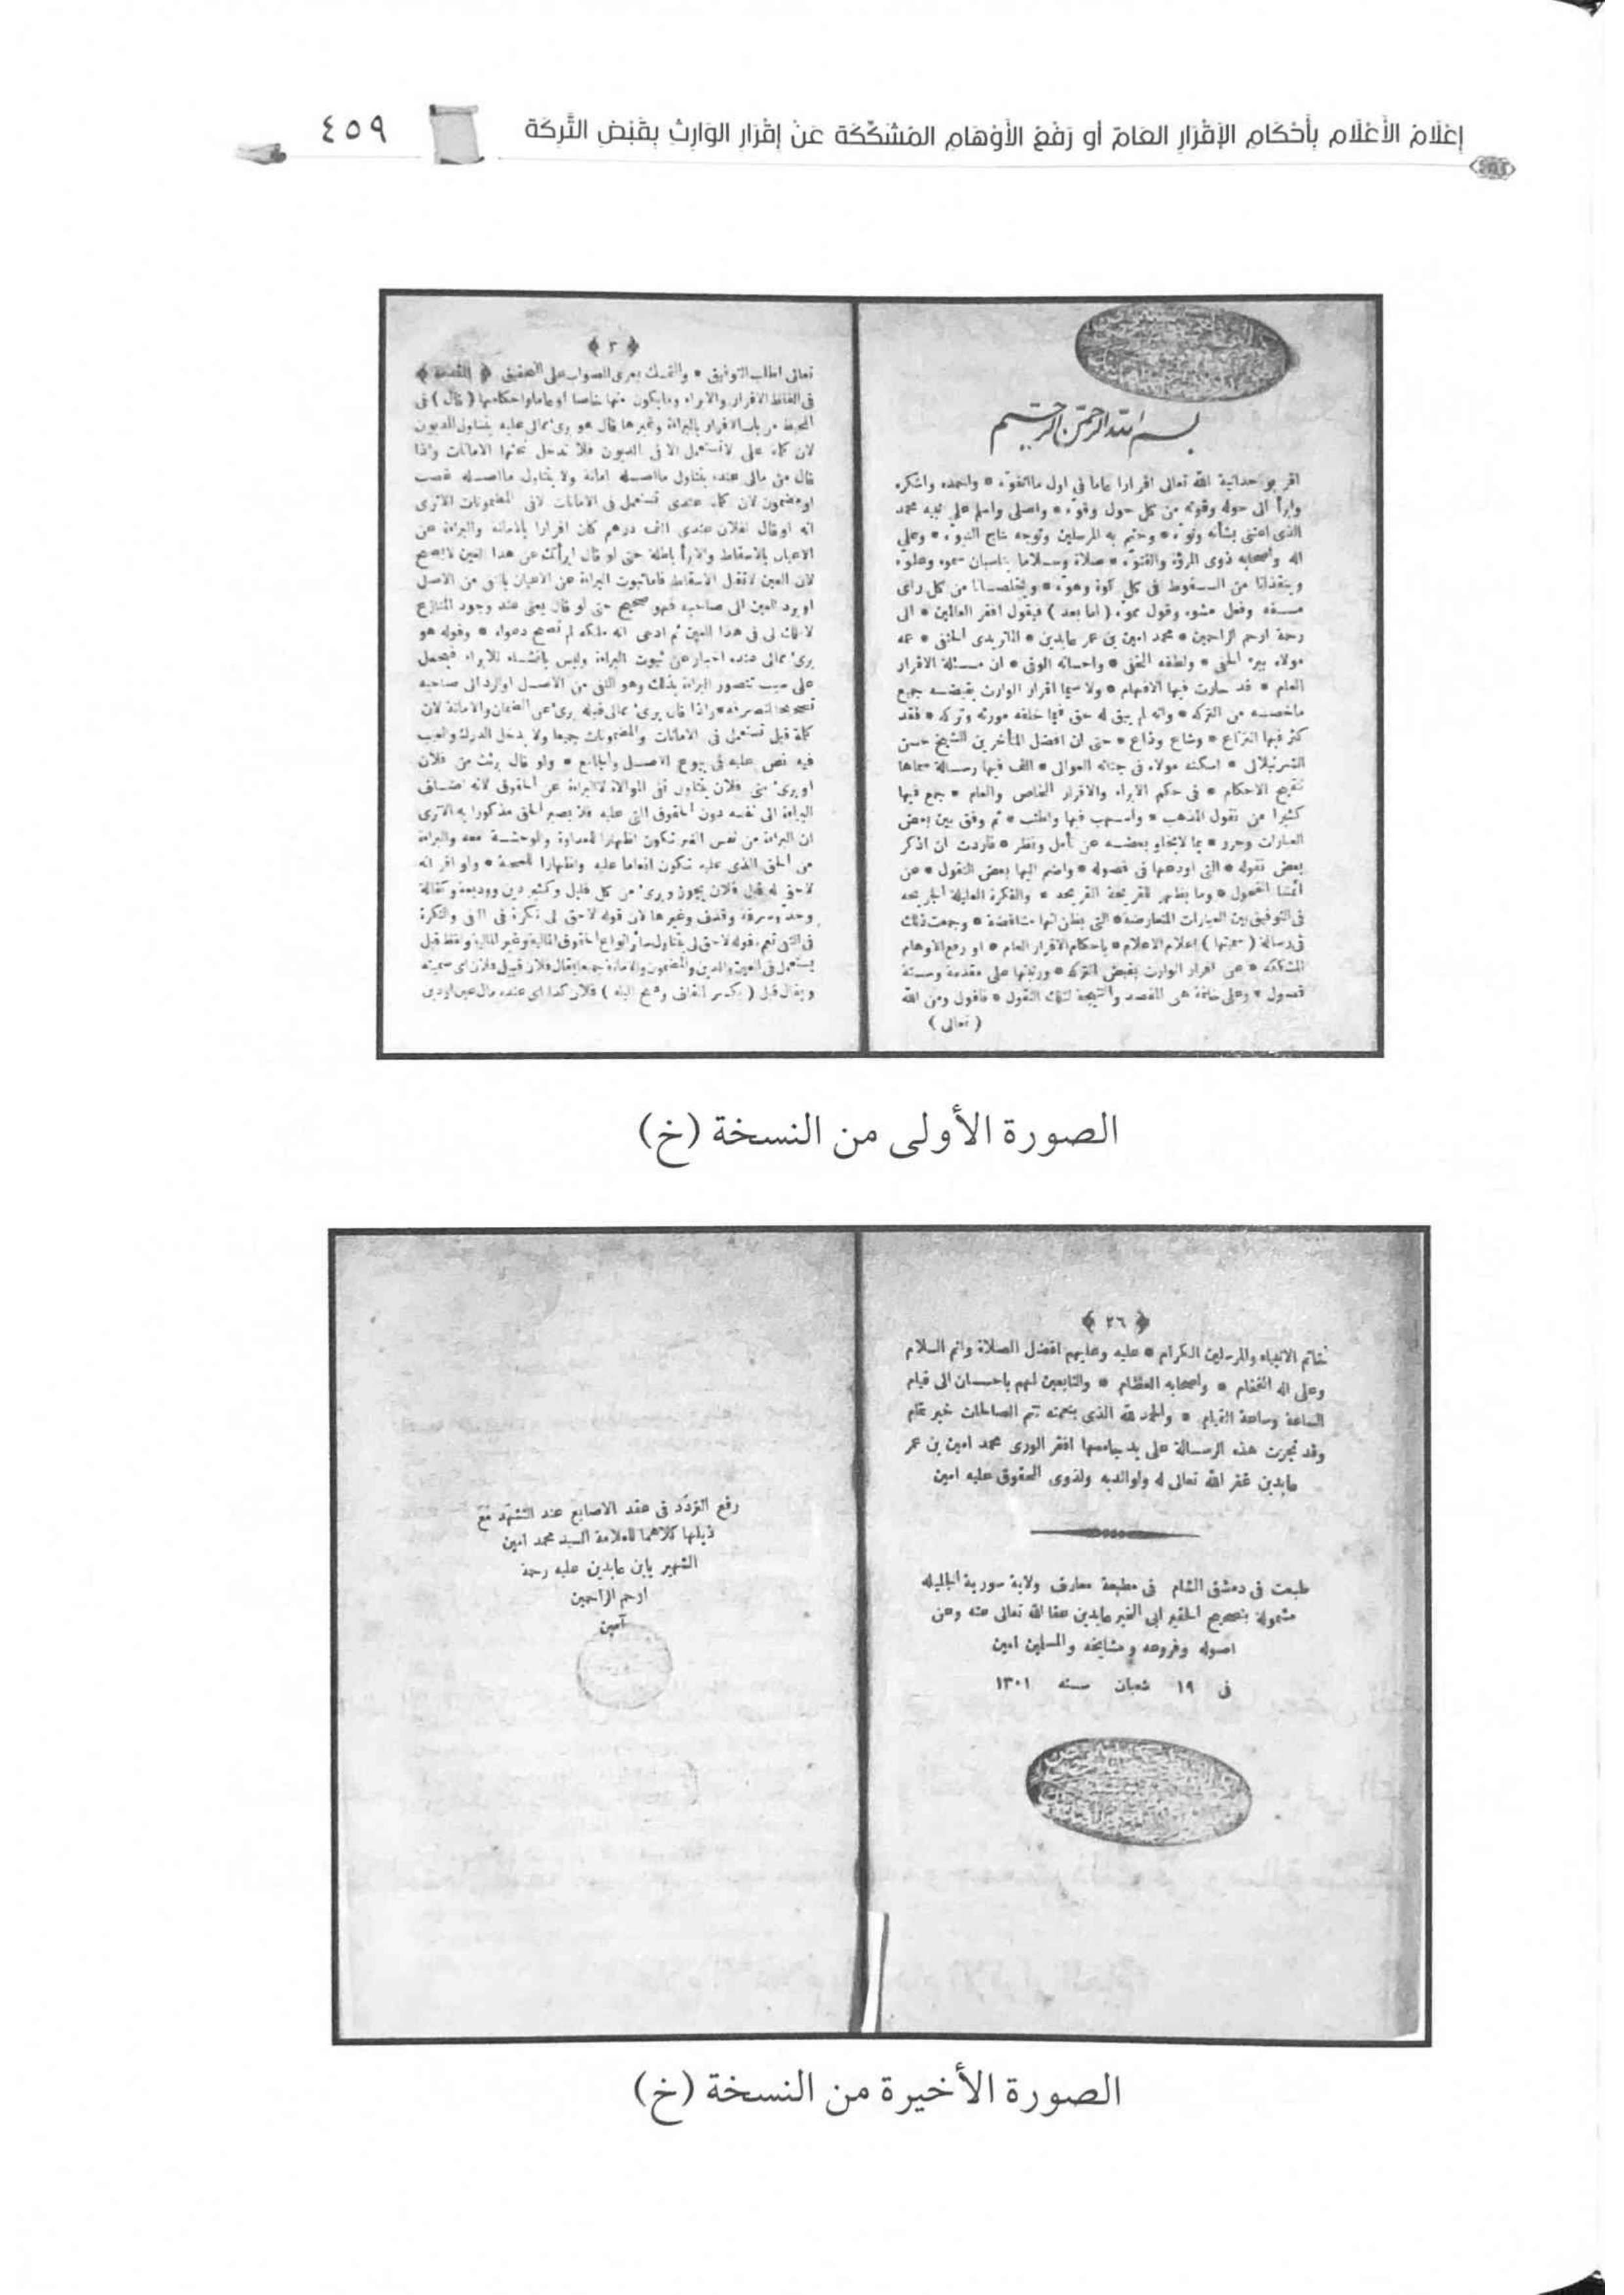 إِعْلَامُ الأَعْلَام بِأَحْكَامِ الإِقْرَارِ العَامّ أو رَفْعُ الأَوْهَامِ المُشَكِّكَة عَنْ إِقْرَارِ الوَارِثِ بِقَبْضِ التَّرِكَة
٤٥٩
بسم الله الرحمن الرحيم
اقر بوحدانية الله تعالى اقرارا عاما فى اول ما اتفوه * واحمده واشكره
وابرأ الى حوله وقوته من كل حول وقوه * واصلى واسلم على نبيه محمد
الذى اعتنى بشأنه ونوه * وختم به المرسلين وتوجه بتاج النبوه * وعلى
اله واصحابه ذوى المروة والفتوه * صلاة وسلاما يناسبان سموه وعلوه
وينقذانا من السقوط فى كل كوة وهوه * ويخلصانا من كل راى
مسفه وفعل مشوه وقول مموه ( اما بعد ) فيقول افقر العالمين * الى
رحمة ارحم الراحمين * محمد امين بن عمر عابدين * الماتريدى الحنفى * عمه
مولاه ببره الحفى * ولطفه الخفى * واحسانه الوفى * ان مسئلة الاقرار
العام * قد حارت فيها الافهام * ولا سيما اقرار الوارث بقبضه جميع
ماخصه من التركه * وانه لم يبق له حق فيما خلفه مورثه وتركه * فقد
كثر فيها النزاع * وشاع وذاع * حتى ان افضل المتأخرين الشيخ حسن
الشرنبلالى * اسكنه مولاه فى جنانه العوالى * الف فيها رسالة سماها
تنقيح الاحكام * فى حكم الابراء والاقرار الخاص والعام * جمع فيها
كثيرا من نقول المذهب * واسهب فيها واطنب * ثم وفق بين بعض
العبارات وحرر * بما لا يخلو بعضه عن تأمل ونظر * فاردت ان اذكر
بعض نقوله * التى اودعها فى فصوله * واضم اليها بعض النقول * عن
ائمتنا الفحول * وما يظهر للقريحة القريحه * والفكرة العليلة الجريحه
فى التوفيق بين العبارات المتعارضة * التى يظن انها متناقضة * وجمعت ذلك
فى رسالة ( سميتها ) اعلام الاعلام * باحكام الاقرار العام * او رفع الاوهام
المشككه * عن اقرار الوارث بقبض التركه * ورتبتها على مقدمة وستة
فصول * وعلى خاتمة هى المقصد والنتيجة لتلك النقول * فاقول ومن الله
( تعالى )
﴿ ٣ ﴾
تعالى اطلب التوفيق * والتمسك بعرى الصواب على التحقيق ﴿ المقدمة ﴾
فى الفاظ الاقرار والابراء وما يكون منها خاصا او عاما واحكامها ( قال ) فى
المحيط من باب الاقرار بالبراءة وغيرها قال هو برئ مما لى عليه يتناول الديون
لان كلمة على لا تستعمل الا فى الديون فلا تدخل تحتها الامانات واذا
قال من مالى عنده يتناول ما اصله امانة ولا يتناول ما اصله غصب
او مضمون لان كلمة عندى تستعمل فى الامانات لا فى المضمونات الاترى
انه لو قال لفلان عندى الف درهم كان اقرارا بالامانة والبراءة عن
الاعيان بالاسقاط والابرأ باطلة حتى لو قال ابرأتك عن هذا العين لا يصح
لان العين لا تقبل الاسقاط فاما ثبوت البراءة عن الاعيان بالنفى من الاصل
او برد العين الى صاحبه فهو صحيح حتى لو قال يعنى عند وجود المنازع
لا ملك لى فى هذا العين ثم ادعى انه ملكه لم تصح دعواه * وقوله هو
برئ مما لى عنده اخبار عن ثبوت البراءة وليس بانشاء للابراء فيحمل
على سبب تتصور البراءة بذلك وهو النفى من الاصل او الرد الى صاحبه
تصحيحا لتصرفه * واذا قال برئ مما لى قبله برئ عن الضمان والامانة لان
كلمة قبل تستعمل فى الامانات والمضمونات جميعا ولا يدخل الدرك والعيب
فيه نص عليه فى بيوع الاصل والجامع * ولو قال برئت من فلان
او برئ منى فلان يتناول نفى الموالاة لا البراءة عن الحقوق لانه اضاف
البراءة الى نفسه دون الحقوق التى عليه فلا يصير الحق مذكورا به الاترى
ان البراءة من نفس الغير تكون اظهارا للعداوة والوحشة معه والبراءة
من الحق الذى عليه تكون انعاما عليه واظهارا للمحبة * ولو اقر انه
لا حق له قبل فلان يجوز وبرئ من كل قليل وكثير دين ووديعة وكفالة
وحد وسرقة وقذف وغيرها لان قوله لا حق لى نكرة فى النفى والنكرة
فى النفى تعم فقوله لا حق لى يتناول سائر انواع الحقوق المالية وغير المالية ولفظ قبل
يستعمل فى العين والدين والمضمون والامانة جميعا يقال فلان قبيل فلان اى ضمينه
ويقال قبل ( بكسر القاف وفتح الباء ) فلان كذا اى عنده مال عين او دين
الصورة الأولى من النسخة (خ)
﴿ ٢٦ ﴾
خاتم الانبياء والمرسلين الكرام * عليه وعليهم افضل الصلاة واتم السلام
وعلى اله الفخام * واصحابه العظام * والتابعين لهم باحسان الى قيام
الساعة وساعة القيام * والحمد لله الذى بنعمته تتم الصالحات خير تمام
وقد نجزت هذه الرسالة على يد جامعها افقر الورى محمد امين بن عمر
عابدين غفر الله تعالى له ولوالديه ولذوى الحقوق عليه امين
طبعت فى دمشق الشام فى مطبعة معارف ولاية سورية الجليله
مشمولة بتصحيح الحقير ابى الخير عابدين عفا الله تعالى عنه وعن
اصوله وفروعه ومشايخه والمسلمين امين
فى ١٩ شعبان سنه ١٣٠١
رفع التردد فى عقد الاصابع عند التشهد مع
ذيلها كلاهما للعلامة السيد محمد امين
الشهير بابن عابدين عليه رحمة
ارحم الراحمين
آمين
الصورة الأخيرة من النسخة (خ)